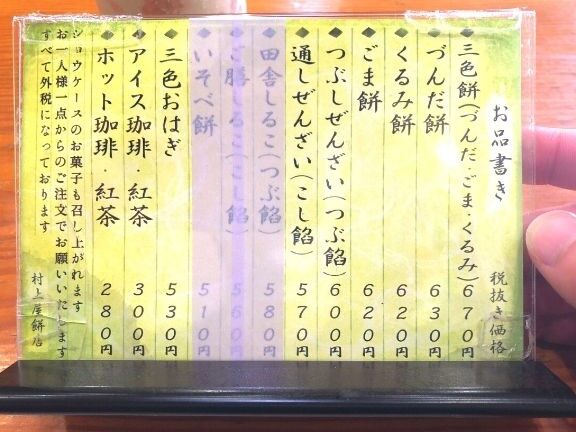 お品書き 税抜き価格
◆三色餅(づんだ・ごま・くるみ) 670円
◆づんだ餅 630円
◆くるみ餅 620円
◆ごま餅 620円
◆つぶしぜんざい(つぶ餡) 600円
◆通しぜんざい(こし餡) 570円
◆田舎しるこ(つぶ餡) 580円
◆ご膳しるこ(こし餡) 560円
◆いそべ餅 510円
◆三色おはぎ 530円
◆アイス珈琲・紅茶 300円
◆ホット珈琲・紅茶 280円
ショウケースのお菓子も召し上がれます
お一人様一点からのご注文でお願いいたします
すべて外税になっております
村上屋餅店